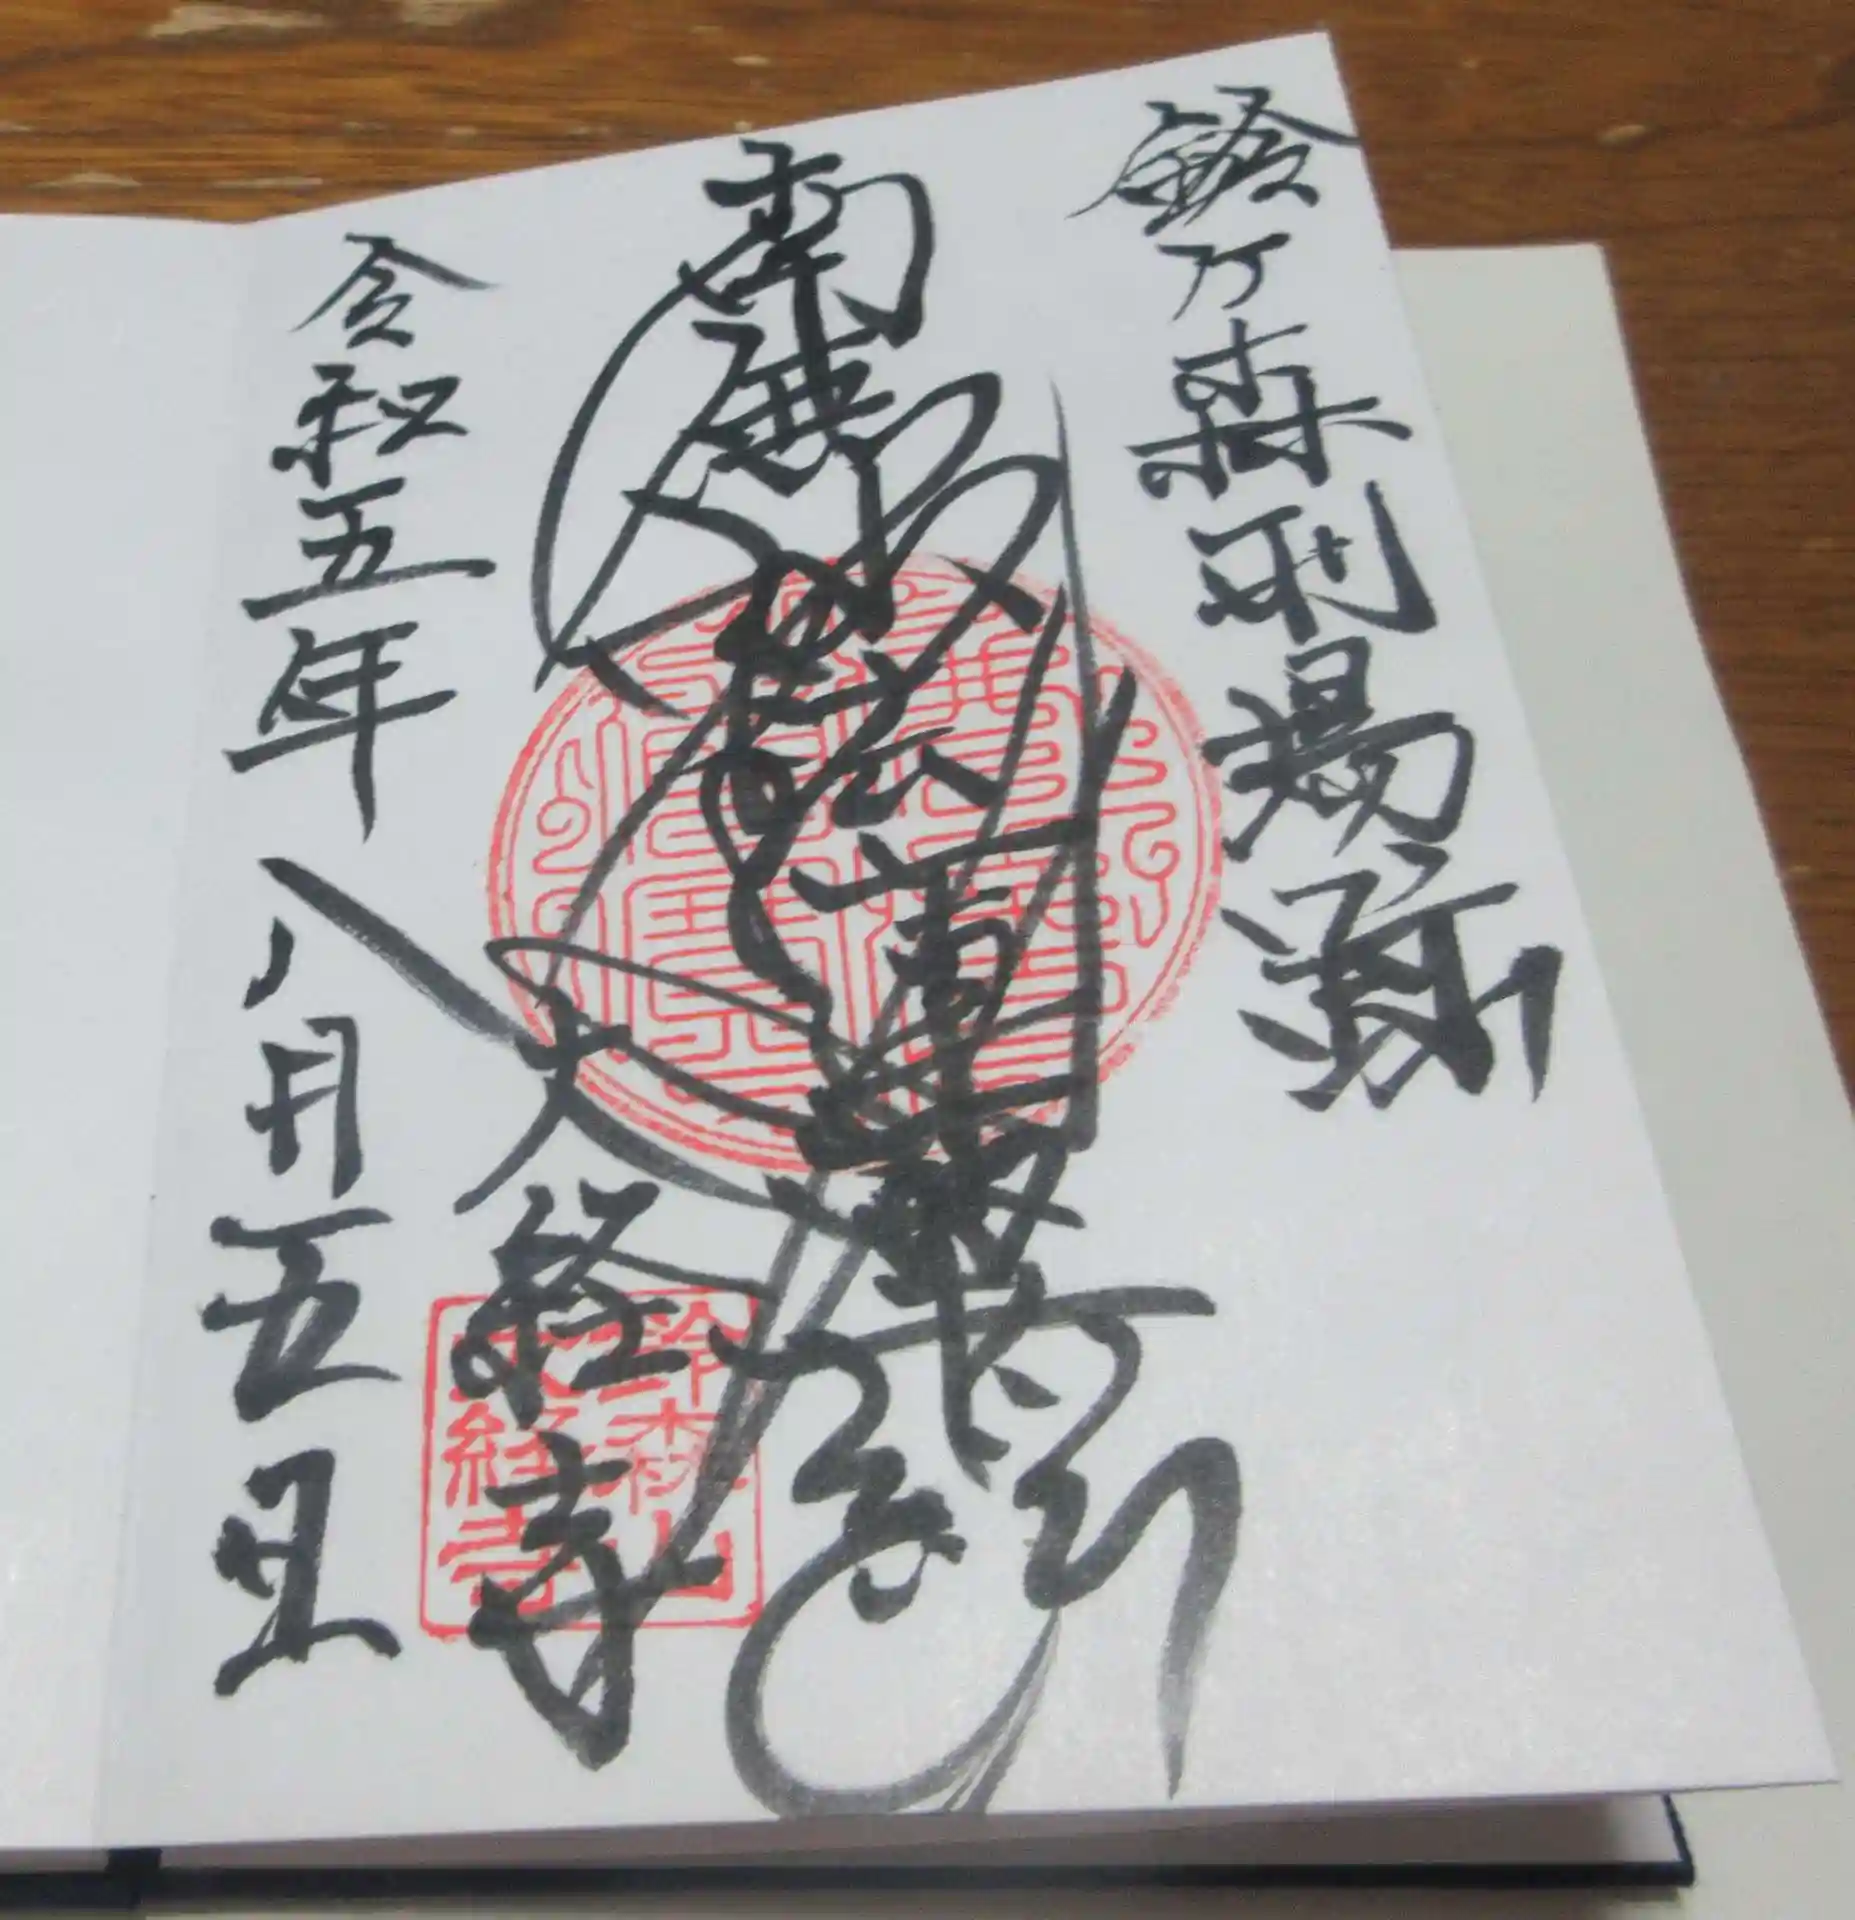 鈴ヶ森刑場跡
南無妙法蓮華経
大経寺
鈴森山
大経寺
令和五年八月五日